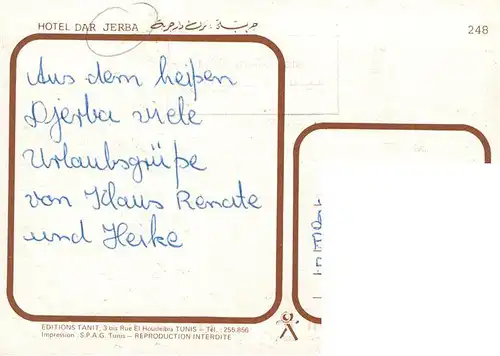 HOTEL DAR JERBA
248
Aus dem heißen
Djerba viele
Urlaubsgrüße
von Klaus Renate
und Heike
EDITIONS TANIT, 3 bis Rue El Houdeibia TUNIS - Tél.: 255.856
Impression : S.P.A.G. Tunis - REPRODUCTION INTERDITE